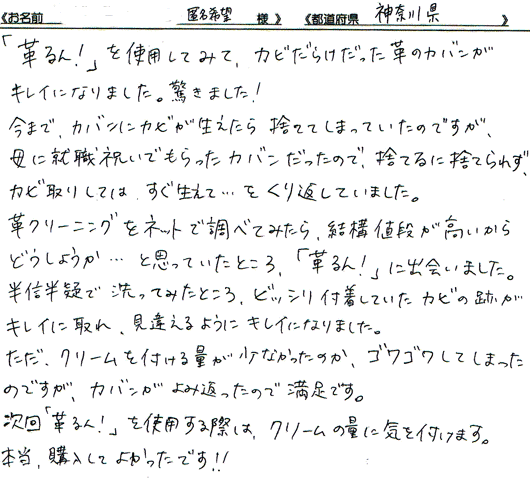 《お名前 匿名希望 様 》 《都道府県 神奈川県 》
「革るん！」を使用してみて、カビだらけだった革のカバンが
キレイになりました。驚きました！
今まで、カバンにカビが生えたら捨ててしまっていたのですが、
母に就職祝いでもらったカバンだったので、捨てるに捨てられず、
カビ取りしては、すぐ生えて…をくり返していました。
革クリーニングをネットで調べてみたら、結構値段が高いから
どうしようか…と思っていたところ、「革るん！」に出会いました。
半信半疑で洗ってみたところ、ビッシリ付着していたカビの跡が
キレイに取れ、見違えるようにキレイになりました。
ただ、クリームを付ける量が少なかったのか、ゴワゴワしてしまった
のですが、カバンがよみ返ったので満足です。
次回「革るん！」を使用する際は、クリームの量に気を付けます。
本当、購入してよかったです!!